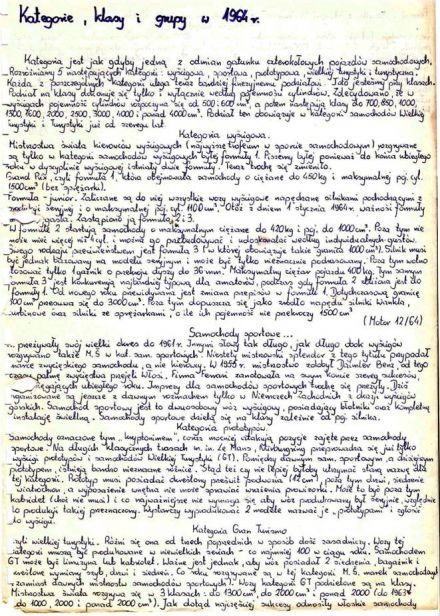 Kategorie, klasy i grupy w 1964 r.
Kategoria jest jak gdyby jedną z odmian gatunku czterokołowych pojazdów samochodowych.
Rozróżniamy 5 następujących kategorii: wyścigowa, sportowa, prototypowa, wielkiej turystyki i turystyczna.
Każda z poszczególnych kategorii ulega teraz bardziej finezyjnemu podziałowi. Idą jesteśmy przy klasach.
Podział na klasy dokonuje się tylko i wyłącznie według pojemności cylindrów. Zdecydowano, że w
wyścigach pojemność cylindrów rozpoczyna się od 500 i 600 cm³, a potem następują klasy do 700, 850, 1000,
1300, 1600, 2000, 2500, 3000, 4000 i ponad 4000 cm³. Podział ten obowiązuje w kategorii samochodów Wielkiej
Turystyki i Turystyki już od szeregu lat.
Kategoria wyścigowa.
Mistrzostwa świata kierowców wyścigowych (najwyższe trofeum w sporcie samochodowym) rozgrywane
są tylko w kategorii samochodów wyścigowych byłej formuły 1. Piszemy byłej ponieważ do końca ubiegłego
roku w dyscyplinie wyścigowej istniały dwie formuły. Teraz trochę się zmieniło.
Grand Prix, czyli formuła 1, która obejmowała samochody o ciężarze do 450 kg i maksymalnej poj. cyl.
1500 cm³ (bez sprężarki).
Formuła - junior. Zaliczane są do niej wszystkie wozy wyścigowe napędzane silnikami pochodzącymi z
seryjnej i o maksymalnej poj. cyl. 1100 cm³. Otóż z dniem 1 stycznia 1964 r. ważność formuły
gasła. Zastąpiono ją formułą 2 i 3.
W formule 2 startują samochody o maksymalnym ciężarze do 420 kg i poj. do 1000 cm³. Poza tym nie
może mieć więcej niż 4 cyl. i można go przebudowywać i udoskonalać według indywidualnych gustów.
Swego rodzaju przeciwieństwem jest formuła 3 (w której obowiązuje także granica 1000 cm³). Silnik musi
być jednak bazowany na modelu seryjnym i może być tylko nieznacznie podrasowany. Poza tym wolno
stosować tylko 1 gaźnik o przekroju dyszy do 36 mm. Maksymalny ciężar pojazdu 400 kg. Tym samym
formuła 3 jest konkurencją najbardziej typową dla amatorów, podczas gdy formuła 2 zbliżona jest do
formuły 1. Od nowego roku przewiduje się jest zmiana przepisów w formule 1. Dotychczasową granicę
1500 cm³ przesuwa się do 3000 cm³. Poza tym dopuszcza się jako źródło napędu silniki Wankla,
turbinowe oraz silniki ze sprężarkami, o ile ich pojemność nie przekroczy 1500 cm³
(Motor 12/64)
Samochody sportowe...
... przeżywały swój wielki okres do 1961 r. Innymi słowy tak długo, jak długo obok wyścigów
rozgrywano także M.Ś w kat. sam. sportowych. Niestety mistrzowski splendor z tego tytułu przypadał
marce zwycięskiego samochodu, a nie kierowcy. W 1955 r. mistrzostwo zdobył Daimler Benz od tego
czasu palmę zwycięstwa przejęli Włosi. Firma "Ferrari" zanotowała na swym koncie szereg sukcesów,
sięgających ubiegłego roku. Imprezy dla samochodów sportowych trochę się przeżyły. Dziś
organizowane są jeszcze z dawnym rozmachem tylko w Niemczech Zachodnich z okazji wyścigów
górskich. Samochód sportowy jest to dwuosobowy wóz wyścigowy, posiadający błotniki oraz kompletną
instalację świetlną. Samochody sportowe dzielą się na klasy zależnie od poj. silnika.
Kategoria prototypów.
Samochody oznaczone tym "kryptonimem", coraz mocniej atakują pozycje zajęte przez samochody
sportowe. Na długich klasycznych trasach m. in. Le Mans, Nürburgring przeprowadza się już tylko
wyścigi prototypów i samochodów Wielkiej Turystyki (GT). Pomiędzy dawnym sam. sportowym a dzisiejszym
prototypem, istnieją bardzo nieznaczne różnice. Stąd też czy nie lepiej byłoby utrzymać starą nazwę dla
tej kategorii. Prototyp musi posiadać określony prześwit podwozia (12 cm), poza tym drzwi, siedzenie
wiatrochron, a wyposażenie wnętrza nie może sprawiać wrażenia prowizorki. Może to być poza tym
kabriolet (choć nie musi) i co najważniejsze nie wymaga się aby wóz produkowany był seryjnie, względnie
do produkcji takiej przeznaczony. Wystarczy wyprodukować 2 modele nazwać je "prototypami" i zgłosić
do wyścigu.
Kategoria Gran Turismo
czyli wielkiej turystyki. Różni się ona od trzech poprzednich w sposób dość zasadniczy. Wozy tej
kategorii muszą być produkowane w niewielkich seriach - co najmniej 100 w ciągu roku. Samochodem
GT może być limuzyna lub kabriolet. Ważne jest jednak, aby wóz posiadał 2 siedzenia, bagażnik i
określone wymiary szyb, drzwi i siedzeń. Co roku rozgrywane są w tej kategorii M.Ś. marek samochodowych
(zamiast dawnych mistrzostw samochodów sportowych). Wozy kategorii GT podzielone są na klasy.
Mistrzostwa świata rozgrywa się w 3 klasach: do 1300 cm³, do 2000 cm³ i ponad 2000 (do 1963r
do 1000, 2000 i ponad 2000 cm³). Jak dotąd najczęściej sukcesy odnosiły włoskie samochody